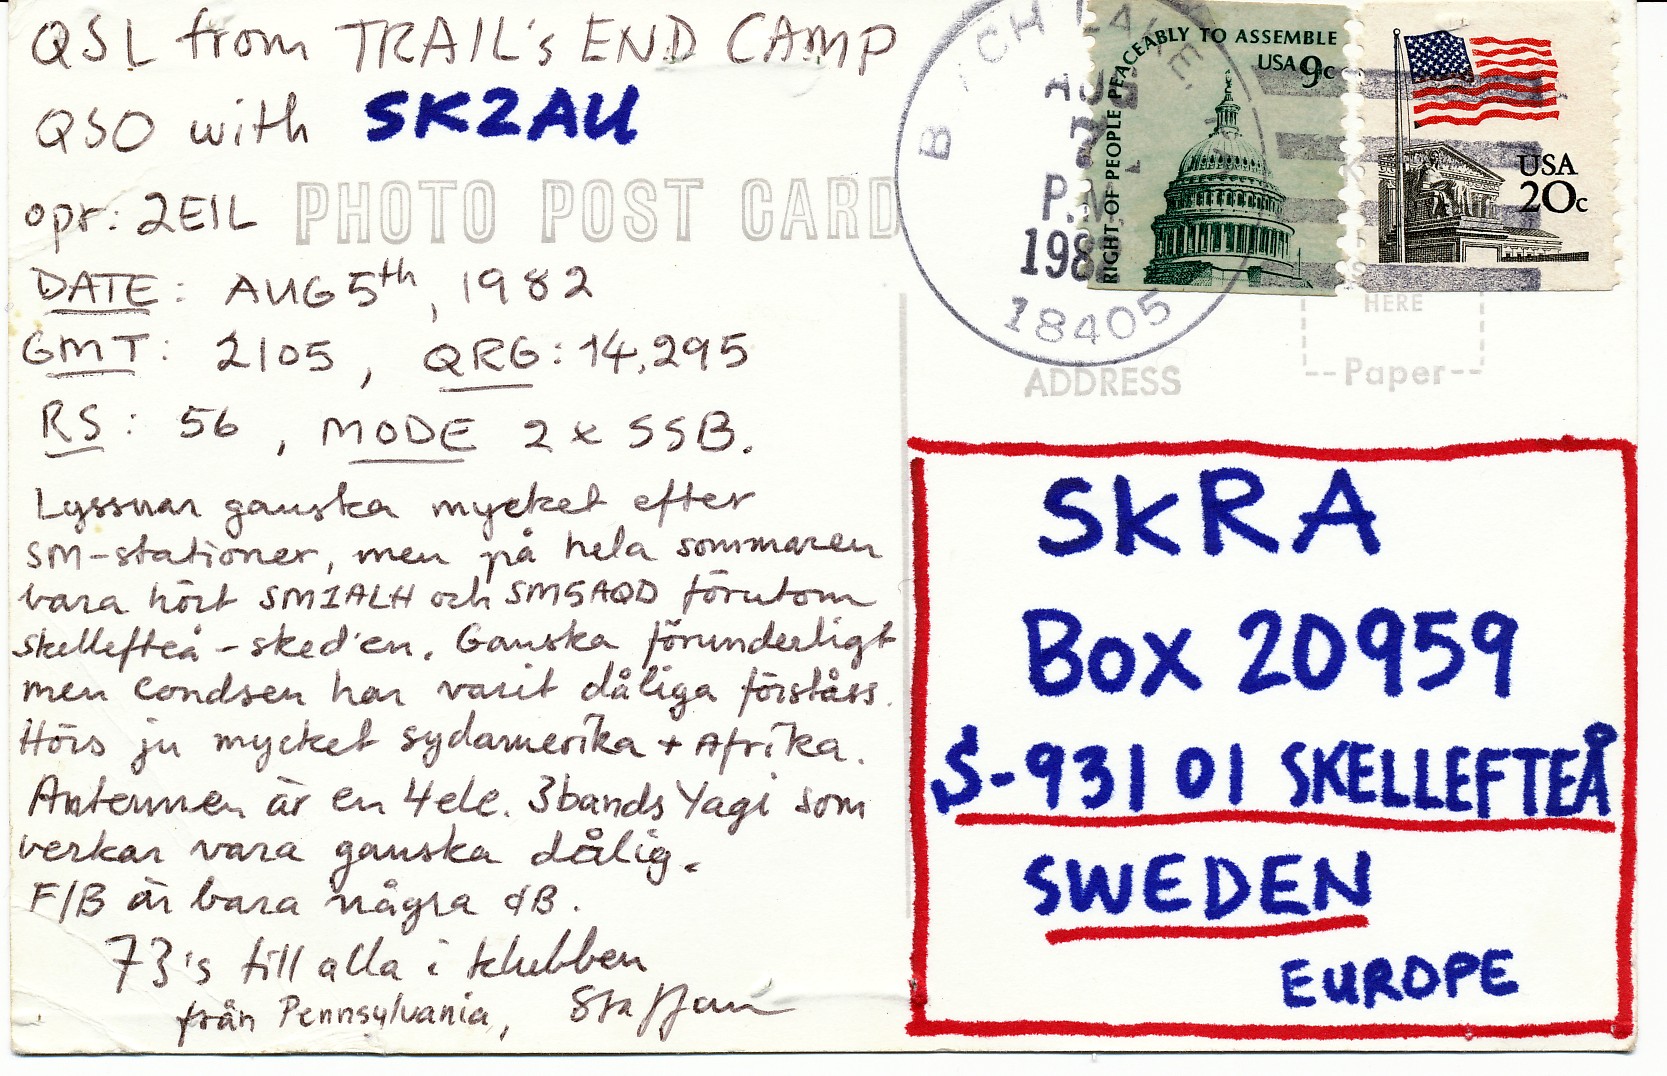 QSL from TRAIL's END CAMP
QSO with SK2AU
opr: 2EIL
PHOTO POST CARD
DATE: AUG 5th, 1982
GMT: 2105, QRG: 14,295
RS: 56, MODE 2 x SSB.
Lyssnar ganska mycket efter
SM-stationer, men på hela sommaren
bara hört SM1ALH och SM5AQD förutom
Skellefteå-sked'en. Ganska förunderligt
men condsen har varit dåliga förståss.
Hörs ju mycket sydamerika + Afrika.
Antennen är en 4 ele. 3bands Yagi som
verkar vara ganska dålig.
F/B är bara några dB.
73's till alla i klubben
från Pennsylvania, Staffan
AUG
P.M.
1982
18405
RIGHT OF PEOPLE PEACEABLY TO ASSEMBLE
USA 9c
USA
20c
HERE
Paper
ADDRESS
SKRA
Box 20959
S-931 01 SKELLEFTEÅ
SWEDEN
EUROPE